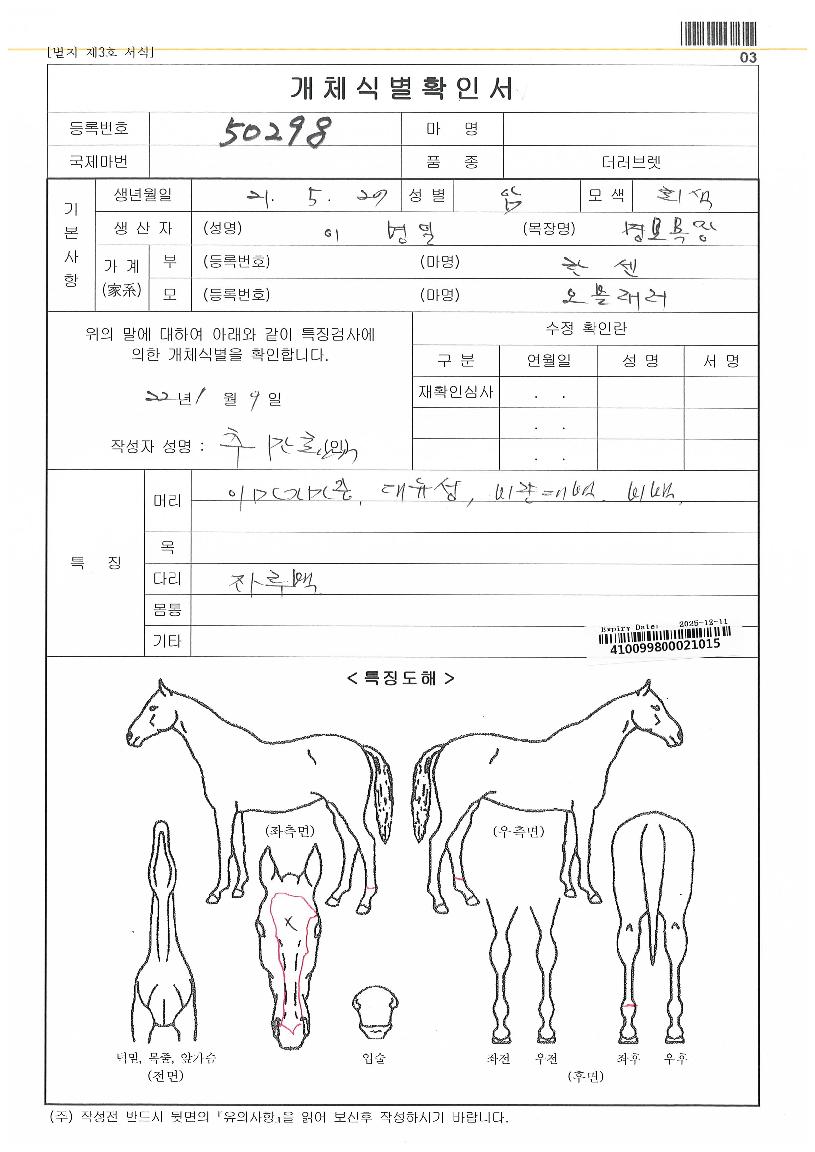 [별지 제3호 서식]
03
개체식별확인서
등록번호 50298 마 명
국제마번 품 종 더러브렛
기본사항
생년월일 21. 5. 29 성 별 암 모 색 회색
생 산 자 (성명) 이 병 일 (목장명)
가 계 (家系) 부 (등록번호) (마명) 한 센
모 (등록번호) (마명) 오블래러
위의 말에 대하여 아래와 같이 특징검사에
의한 개체식별을 확인합니다.
22년 1월 9일
작성자 성명 : (인)
수정 확인란
구 분 연월일 성 명 서 명
재확인심사 . .
. .
. .
특 징
머리 대유성, 비백.
목
다리 좌후백
몸통
기타
Expiry Date: 2025-12-11
410099800021015
< 특징도해 >
(좌측면) (우측면)
턱밑, 목줄, 앞가슴
(전면)
입술
좌전 우전 좌후 우후
(후면)
(주) 작성전 반드시 뒷면의 『유의사항』을 읽어 보신후 작성하시기 바랍니다.